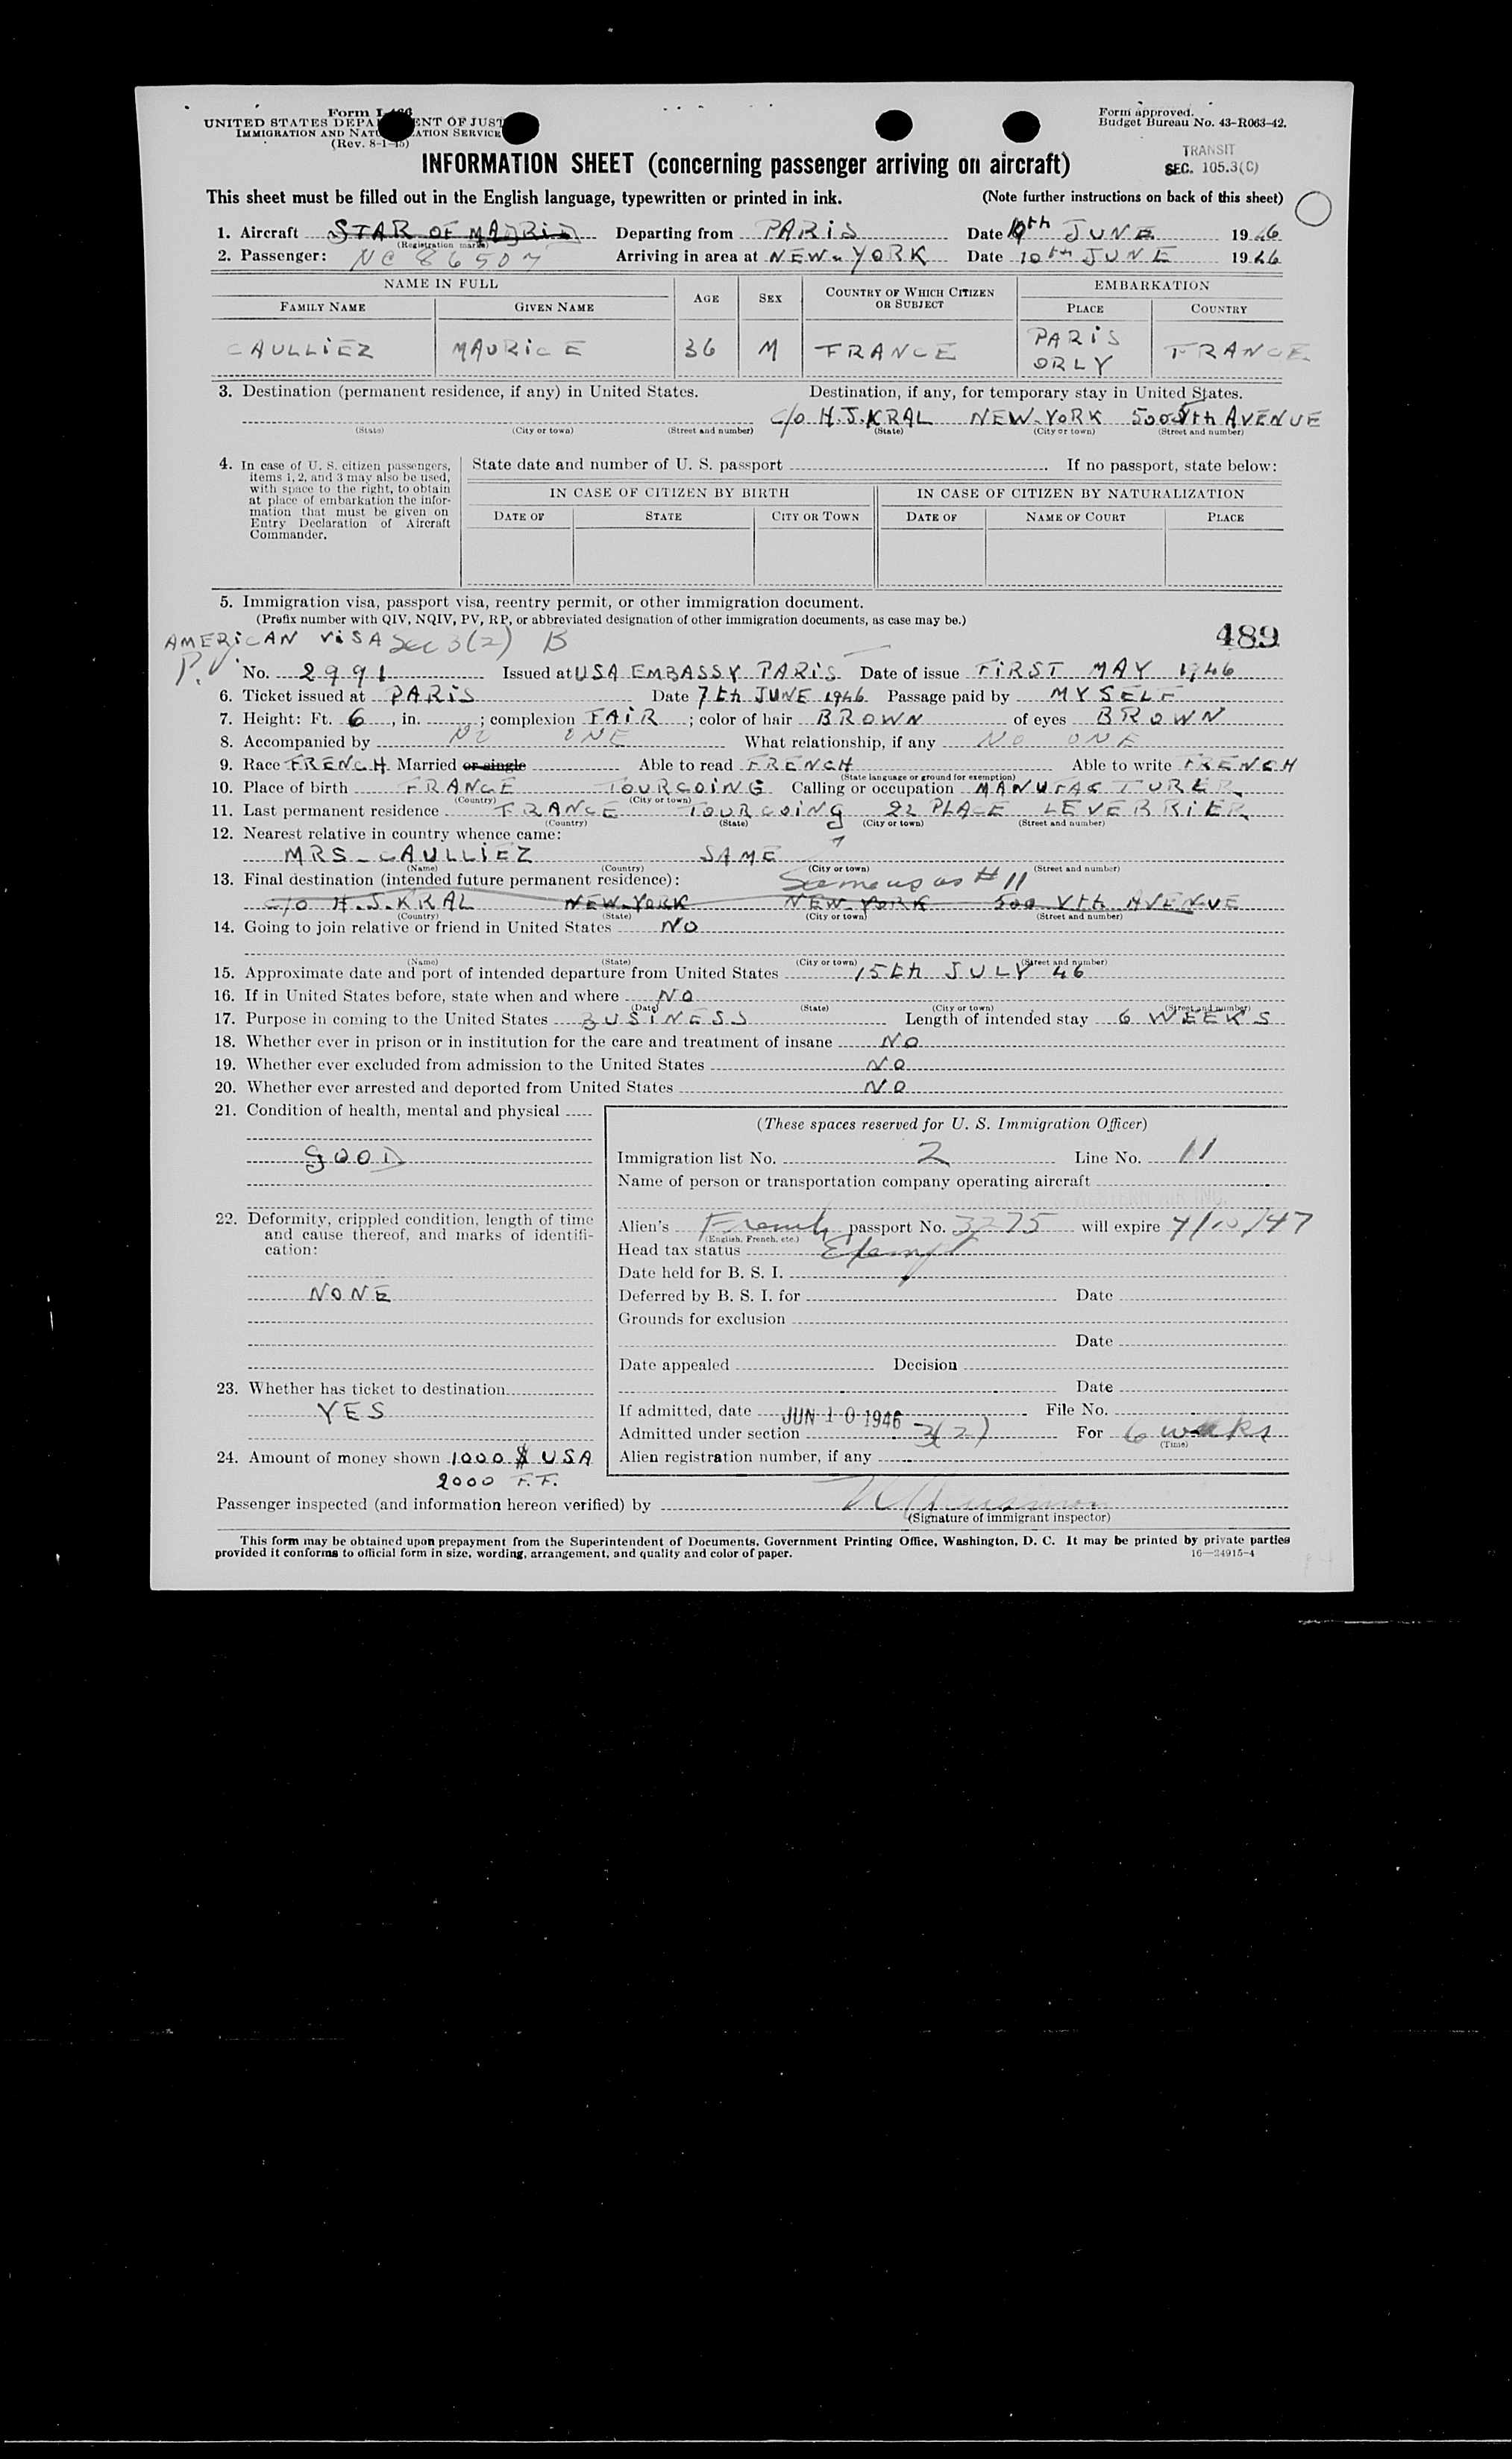 Form I-466
UNITED STATES DEPARTMENT OF JUSTICE
IMMIGRATION AND NATURALIZATION SERVICE
(Rev. 8-1-45)
Form approved.
Budget Bureau No. 43-R063-42.
TRANSIT
SEC. 105.3(C)
INFORMATION SHEET (concerning passenger arriving on aircraft)
This sheet must be filled out in the English language, typewritten or printed in ink. (Note further instructions on back of this sheet)
1. Aircraft STAR OF MADRID Departing from PARIS Date 10th JUNE 1946
(Registration marks)
2. Passenger: NC 86507 Arriving in area at NEW-YORK Date 10th JUNE 1946
NAME IN FULL AGE SEX COUNTRY OF WHICH CITIZEN OR SUBJECT EMBARKATION
FAMILY NAME GIVEN NAME PLACE COUNTRY
CAULLIEZ MAURICE 36 M FRANCE PARIS ORLY FRANCE
3. Destination (permanent residence, if any) in United States. Destination, if any, for temporary stay in United States.
c/o H.J.KRAL NEW-YORK 500 5th AVENUE
(State) (City or town) (Street and number) (State) (City or town) (Street and number)
4. In case of U. S. citizen passengers, items 1, 2, and 3 may also be used, with space to the right, to obtain at place of embarkation the information that must be given on Entry Declaration of Aircraft Commander.
State date and number of U. S. passport If no passport, state below:
IN CASE OF CITIZEN BY BIRTH IN CASE OF CITIZEN BY NATURALIZATION
DATE OF STATE CITY OR TOWN DATE OF NAME OF COURT PLACE
5. Immigration visa, passport visa, reentry permit, or other immigration document.
(Prefix number with QIV, NQIV, PV, RP, or abbreviated designation of other immigration documents, as case may be.)
AMERICAN VISA Sec 3(2) B 489
P.V No. 2991 Issued at USA EMBASSY PARIS Date of issue FIRST MAY 1946
6. Ticket issued at PARIS Date 7th JUNE 1946 Passage paid by MYSELF
7. Height: Ft. 6, in. ; complexion FAIR ; color of hair BROWN of eyes BROWN
8. Accompanied by NO ONE What relationship, if any NO ONE
9. Race FRENCH Married or single Able to read FRENCH Able to write FRENCH
(State language or ground for exemption)
10. Place of birth FRANCE TOURCOING Calling or occupation MANUFACTURER
(Country) (City or town)
11. Last permanent residence FRANCE TOURCOING 22 PLACE LEVERRIER
(Country) (State) (City or town) (Street and number)
12. Nearest relative in country whence came:
MRS - CAULLIEZ SAME
(Name) (Country) (City or town) (Street and number)
13. Final destination (intended future permanent residence): Same as #11
c/o H.J.KRAL NEW-YORK NEW YORK 500 Vth AVENUE
(Country) (State) (City or town) (Street and number)
14. Going to join relative or friend in United States NO
(Name) (State) (City or town) (Street and number)
15. Approximate date and port of intended departure from United States 15th JULY 46
16. If in United States before, state when and where NO
(Date) (State) (City or town) (Street and number)
17. Purpose in coming to the United States BUSINESS Length of intended stay 6 WEEKS
18. Whether ever in prison or in institution for the care and treatment of insane NO
19. Whether ever excluded from admission to the United States NO
20. Whether ever arrested and deported from United States NO
21. Condition of health, mental and physical
GOOD
22. Deformity, crippled condition, length of time and cause thereof, and marks of identification:
NONE
23. Whether has ticket to destination
YES
24. Amount of money shown 1000 $ USA
2000 F.F.
(These spaces reserved for U. S. Immigration Officer)
Immigration list No. 2 Line No. 11
Name of person or transportation company operating aircraft
Alien's French passport No. 3275 will expire 4/10/47
(English, French, etc.)
Head tax status Exempt
Date held for B. S. I.
Deferred by B. S. I. for Date
Grounds for exclusion
Date
Date appealed Decision
Date
If admitted, date JUN 10 1946 File No.
Admitted under section 3(2) For 6 weeks
(Time)
Alien registration number, if any
Passenger inspected (and information hereon verified) by
(Signature of immigrant inspector)
This form may be obtained upon prepayment from the Superintendent of Documents, Government Printing Office, Washington, D. C. It may be printed by private parties
provided it conforms to official form in size, wording, arrangement, and quality and color of paper. 16—24915-4